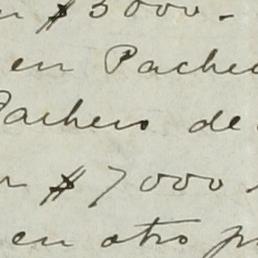 $ 5000.-
en Pachec
Pacheco de
$ 7000
en otro p